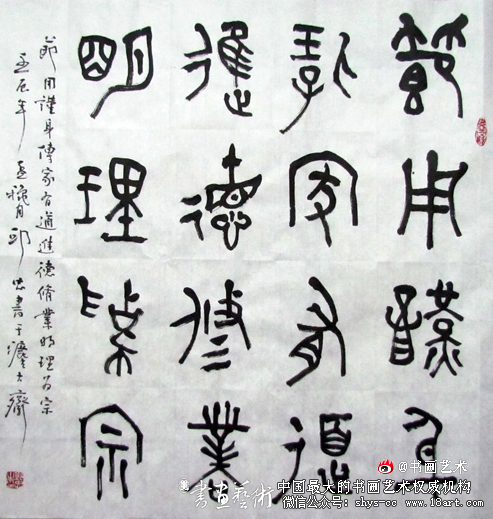 節用謹身
傳家有道
進德修業
明理為宗
節用謹身傳家有道進德脩業明理為宗
壬辰年 月 邱 書于 大齋
@书画艺术
書画藝術
中国最大的书画艺术权威机构
微信公众号: shys-cc www.18art.com